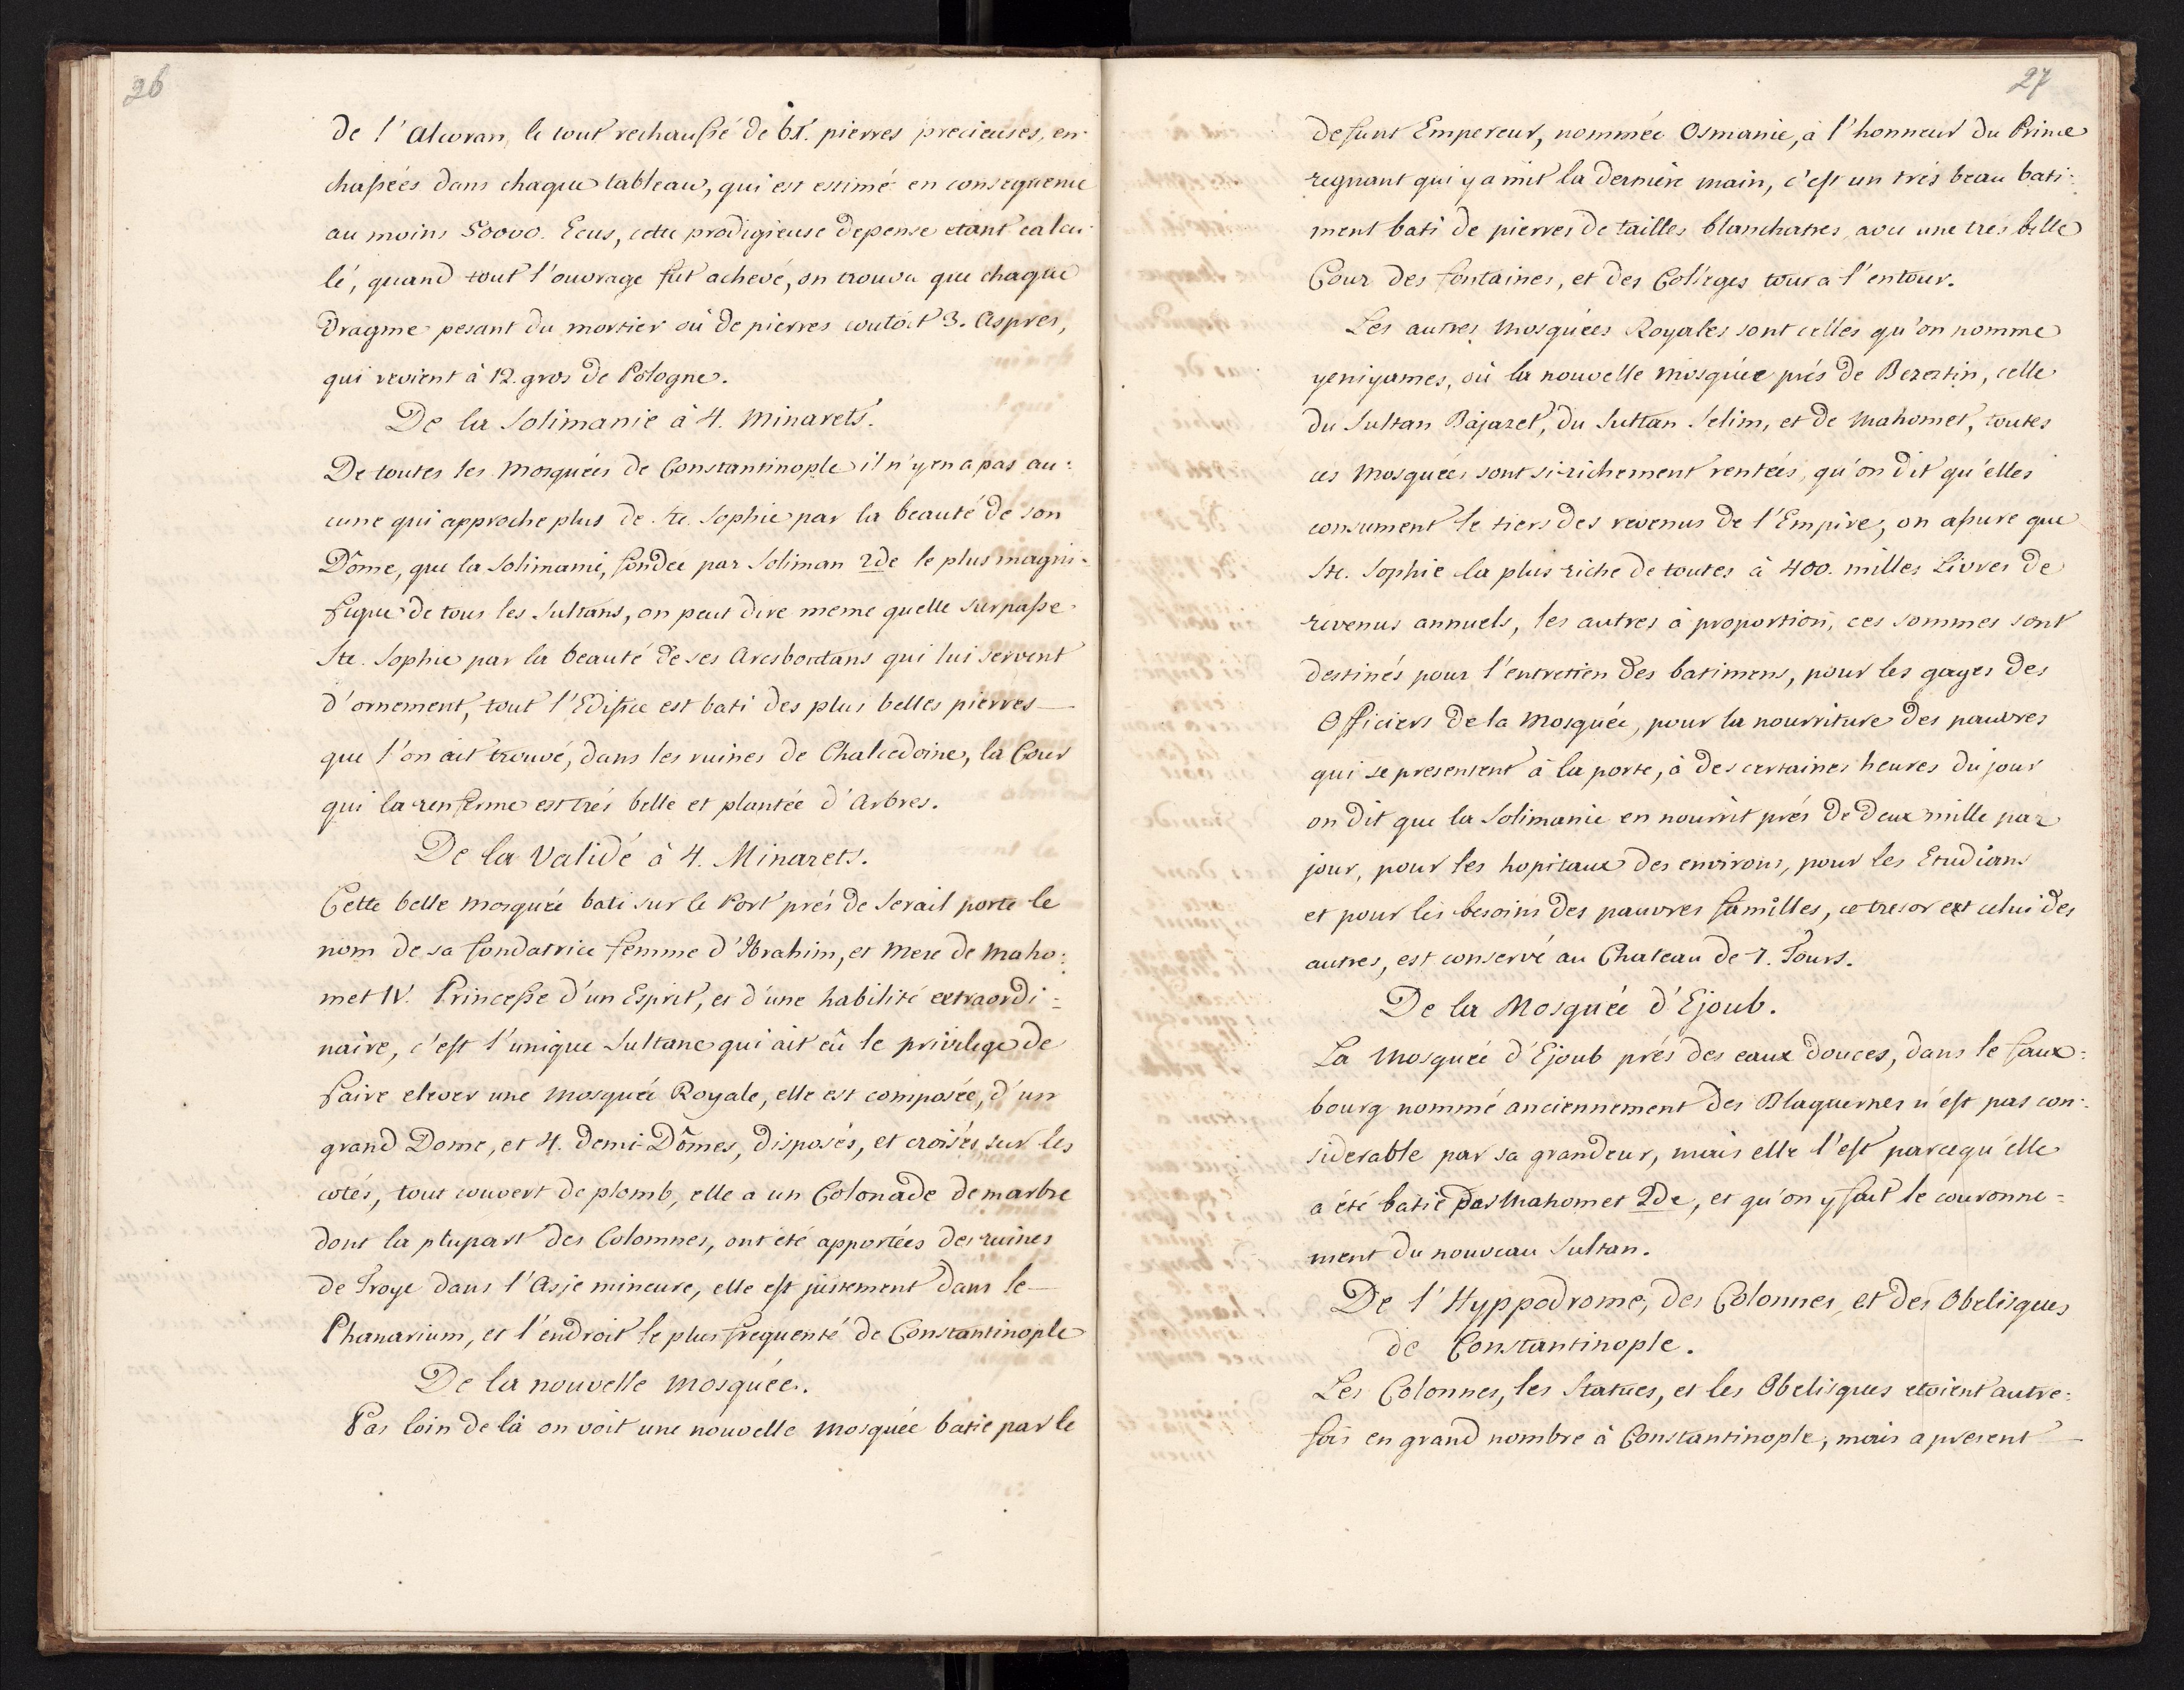 26
de l'Alcoran, le tout rechaussé de 61. pierres precieuses, en-
chassées dans chaque tableau, qui est estimé en consequence
au moins 50000. Ecus, cette prodigieuse depense etant calcu-
lé, quand tout l'ouvrage fut achevé, on trouva que chaque
Dragme pesant du mortier où de pierres coutoit 3. Aspres,
qui revient à 12. gros de Pologne.
De la Solimanie à 4. Minarets.
De toutes les Mosquées de Constantinople il n'y en a pas au:
cune qui approche plus de Ste. Sophie par la beauté de son
Dôme, que la Solimanie, fondée par Soliman 2de le plus magni-
fique de tous les Sultans, on peut dire meme quelle surpasse
Ste. Sophie par la beauté de ses Arcsboutans qui lui servent
d'ornement, tout l'Edifice est bati des plus belles pierres
que l'on ait trouvé, dans les ruines de Chalcedoine, la Cour
qui la renferme est trés belle et plantée d'Arbres.
De la Validé à 4. Minarets.
Cette belle Mosquée bati sur le Port prés de Serail porte le
nom de sa fondatrice femme d'Ibrahim, et Mere de Maho:
met IV. Princesse d'un Esprit, et d'une habilité extraordi=
naire, c'est l'unique Sultane qui ait eû le privilege de
faire elever une Mosquée Royale, elle est composée, d'un
grand Dome, et 4. demi-Dômes, disposés, et croisés sur les
cotés, tout couvert de plomb, elle a un Colonade de marbre
dont la plupart des Colomnes, ont été apportées des ruines
de Troye dans l'Asje mineure, elle est justement dans le
Phanarium, et l'endroit le plus frequenté de Constantinople
De la nouvelle Mosquée.
Pas loin de là on voit une nouvelle Mosquée batie par le
27
defunt Empereur, nommée Osmanie, à l'honneur du Prince
regnant qui y a mit la derniere main, c'est un trés beau bati:
ment bati de pierres de tailles blanchatres avec une tres belle
Cour des fontaines, et des Colleges tour a l'entour.
Les autres Mosquées Royales sont celles qu'on nomme
yeniyames, où la nouvelle Mosquée prés de Bezestin, celle
du Sultan Bajazet, du Sultan Selim, et de Mahomet, toutes
ces Mosquées sont si richement rentées, qu'on dit qu'elles
consument le tiers des revenus de l'Empire, on assure que
Ste. Sophie la plus riche de toutes à 400. milles Livres de
revenus annuels, les autres à proportion, ces sommes sont
destinés pour l'entretien des batimens, pour les gages des
Officiers de la Mosquée, pour la nourriture des pauvres
qui se presentent à la porte, à des certaines heures du jour
on dit que la Solimanie en nourrit prés de deux mille par
jour, pour les hopitaux des environs, pour les Etudians
et pour les besoins des pauvres familles, ce tresor et celui des
autres, est conservé au Chateau de 7. Tours.
De la Mosquée d'Ejoub.
La Mosquée d'Ejoub prés des eaux douces, dans le faux=
bourg nommé anciennement des Blaquernes n'est pas con-
siderable par sa grandeur, mais elle l'est parcequ'elle
a été batie par Mahomet 2de, et qu'on y fait le couronne=
ment du nouveau Sultan.
De l'Hyppodrome, des Colonnes, et des Obelisques
de Constantinople.
Les Colonnes, les Statues, et les Obelisques etoient autre:
fois en grand nombre à Constantinople, mais a present